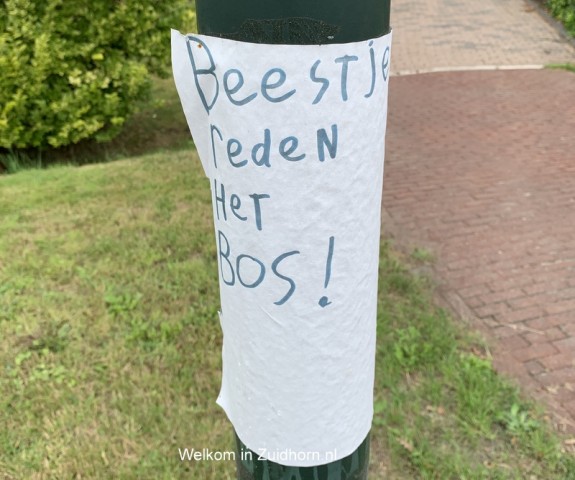 Beestje
reden
Het
BOS!
Welkom in Zuidhorn.nl